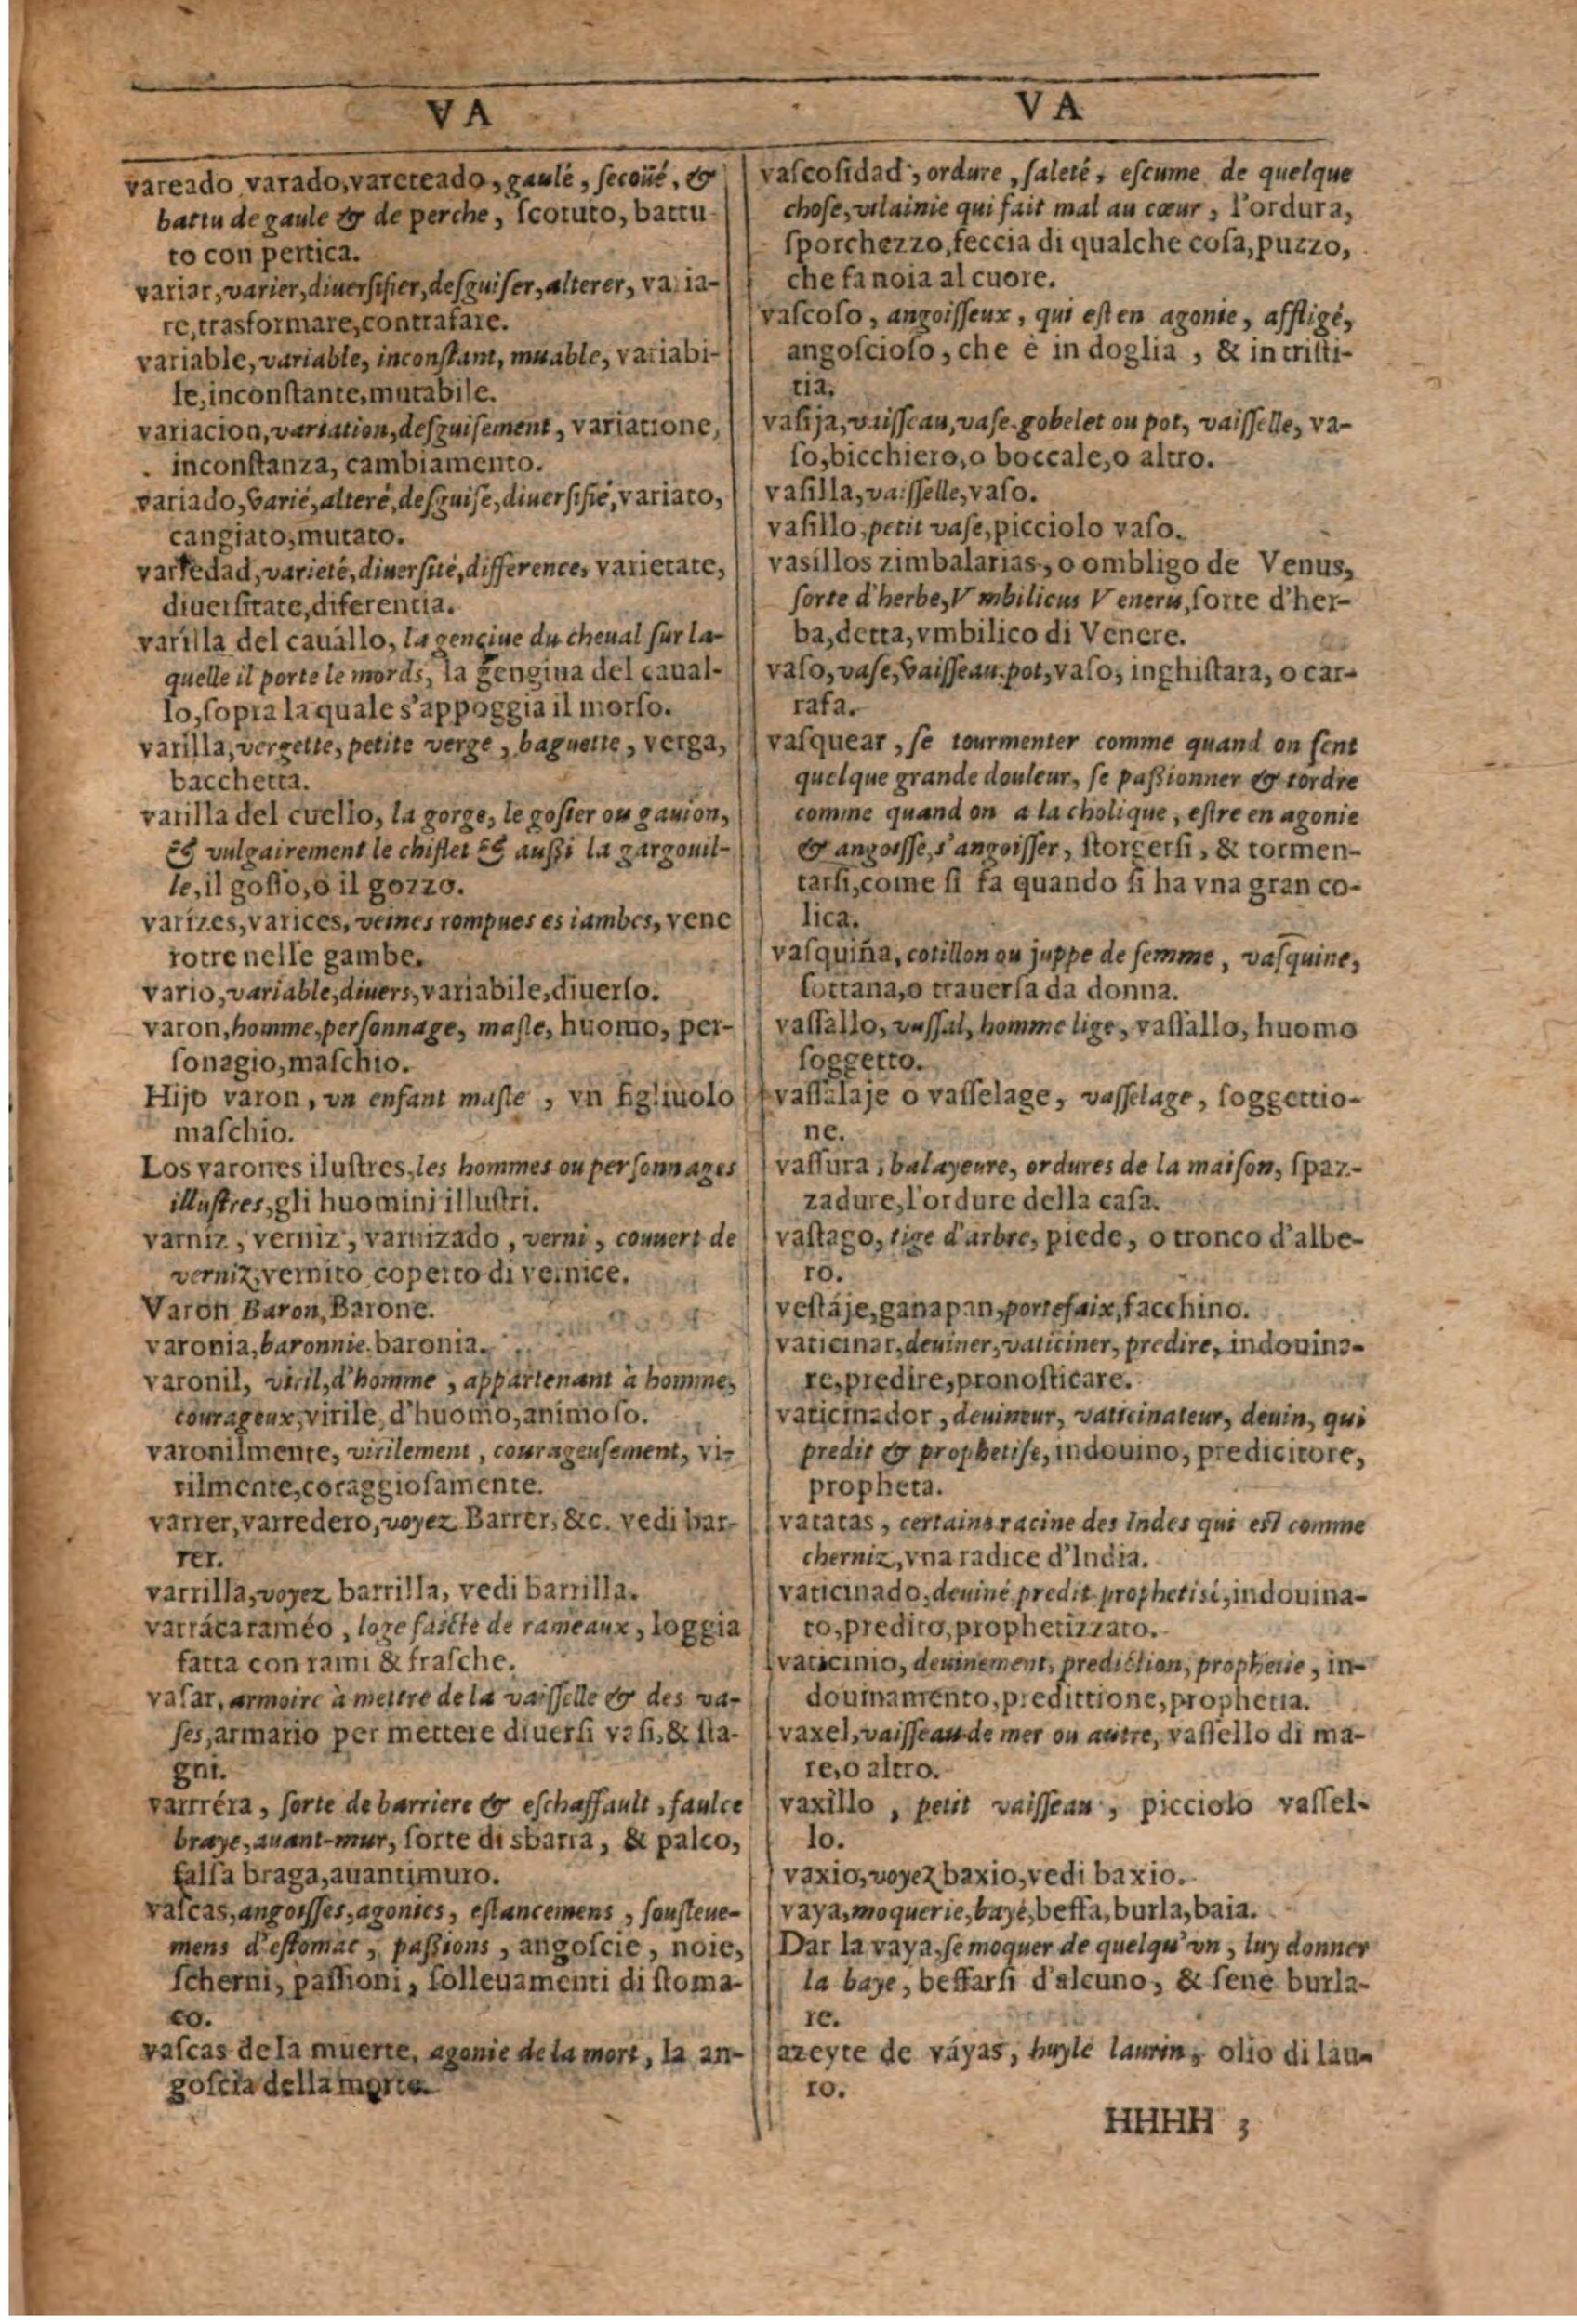 VA
vareado varado, vareteado, gaulé, secoüé, &
battu de gaule & de perche, ſcotuto, battu-
to con pertica.
variar, varier, diuerſifier, deſguiſer, alterer, varia-
re, trasformare, contrafare.
variable, variable, inconſtant, muable, variabi-
le, inconſtante, mutabile.
variacion, variation, deſguiſement, variatione,
inconſtanza, cambiamento.
variado, varié, alteré, deſguiſe, diuerſifié, variato,
cangiato, mutato.
variedad, varieté, diuerſité, difference, varietate,
diuerſitate, diferentia.
varilla del cauállo, la genciue du cheual ſur la-
quelle il porte le mords, la gengiua del caual-
lo, ſopra la quale s'appoggia il morſo.
varilla, vergette, petite verge, baguette, verga,
bacchetta.
varilla del cuello, la gorge, le goſier ou gauion,
& vulgairement le chiflet & auſſi la gargouil-
le, il goſſo, o il gozzo.
varizes, varices, veines rompues es iambes, vene
rotte nelle gambe.
vario, variable, diuers, variabile, diuerſo.
varon, homme, perſonnage, maſle, huomo, per-
ſonagio, maſchio.
Hijo varon, vn enfant maſle, vn figliuolo
maſchio.
Los varones iluſtres, les hommes ou perſonnages
illuſtres, gli huomini illuſtri.
varniz, verniz, varnizado, verni, couuert de
verniz, vernito coperto di vernice.
Varon Baron, Barone.
varonia, baronnie, baronia.
varonil, viril, d'homme, appartenant à homme,
courageux, virile, d'huomo, animoſo.
varonilmente, virilement, courageuſement, vi-
rilmente, coraggioſamente.
varrer, varredero, voyez Barrer, &c. vedi bar-
rer.
varrilla, voyez barrilla, vedi barrilla.
varrácaraméo, loge faicte de rameaux, loggia
fatta con rami & fraſche.
vaſar, armoire à mettre de la vaiſſelle & des va-
ſes, armario per mettere diuerſi vaſi, & ſta-
gni.
varrréra, ſorte de barriere & eſchaffault, faulce
braye, auant-mur, ſorte di sbarra, & palco,
falſa braga, auantimuro.
vaſcas, angoiſſes, agonies, eſlancemens, ſouſleue-
mens d'eſtomac, paſſions, angoſcie, noie,
ſcherni, paſſioni, ſolleuamenti di ſtoma-
co.
vaſcas de la muerte, agonie de la mort, la an-
goſcia della morte.
VA
vaſcoſidad, ordure, ſaleté, eſcume de quelque
choſe, vilainie qui fait mal au cœur, l'ordura,
ſporchezzo, feccia di qualche coſa, puzzo,
che fa noia al cuore.
vaſcoſo, angoiſſeux, qui eſt en agonie, affligé,
angoſcioſo, che è in doglia, & in triſti-
tia.
vaſija, vaiſſeau, vaſe. gobelet ou pot, vaiſſelle, va-
ſo, bicchiero, o boccale, o altro.
vaſilla, vaiſſelle, vaſo.
vaſillo, petit vaſe, picciolo vaſo.
vasillos zimbalarias, o ombligo de Venus,
ſorte d'herbe, Vmbilicus Veneris, ſorte d'her-
ba, detta, vmbilico di Venere.
vaſo, vaſe, vaiſſeau. pot, vaſo, inghiſtara, o car-
rafa.
vaſquear, ſe tourmenter comme quand on ſent
quelque grande douleur, ſe paſſionner & tordre
comme quand on a la cholique, eſtre en agonie
& angoiſſe, s'angoiſſer, ſtorcerſi, & tormen-
tarſi, come ſi fa quando ſi ha vna gran co-
lica.
vaſquiña, cotillon ou juppe de femme, vaſquine,
ſottana, o trauerſa da donna.
vaſſallo, vaſſal, homme lige, vaſſallo, huomo
ſoggetto.
vaſſalaje o vaſſelage, vaſſelage, ſoggettio-
ne.
vaſſura, balayeure, ordures de la maiſon, ſpaz-
zadure, l'ordure della caſa.
vaſtago, tige d'arbre, piede, o tronco d'albe-
ro.
veſtáje, ganapan, portefaix, facchino.
vaticinar, deuiner, vaticiner, predire, indouina-
re, predire, pronoſticare.
vaticinador, deuineur, vaticinateur, deuin, qui
predit & prophetiſe, indouino, predicitore,
propheta.
vatatas, certaine racine des Indes qui eſt comme
cherniz, vna radice d'India.
vaticinado, deuiné predit prophetisé, indouina-
to, predito, prophetizzato.
vaticinio, deuinement, prediction, prophetie, in-
douinamento, predittione, prophetia.
vaxel, vaiſſeau de mer ou autre, vaſſello di ma-
re, o altro.
vaxillo, petit vaiſſeau, picciolo vaſſel-
lo.
vaxio, voyez baxio, vedi baxio.
vaya, moquerie, baye, beffa, burla, baia.
Dar la vaya, ſe moquer de quelqu'vn, luy donner
la baye, beffarſi d'alcuno, & ſene burla-
re.
azeyte de váyas, huyle laurin, olio di lau-
ro.
HHHH 3